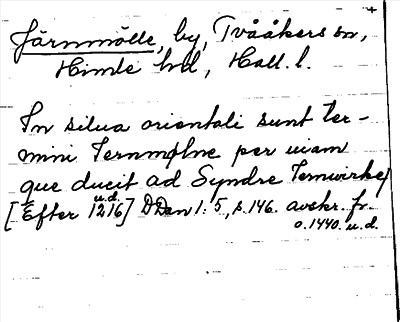 Järnmölle, by, Tvååkers sn,
Himle hd, Hall. l.
In silua orientali sunt ter-
mini Iernmølne per uiam
que ducit ad Syndre Iernwirke
[Efter 1216] u.d. DDan 1: 5, s. 146. avskr. fr.
o. 1440. u.d.